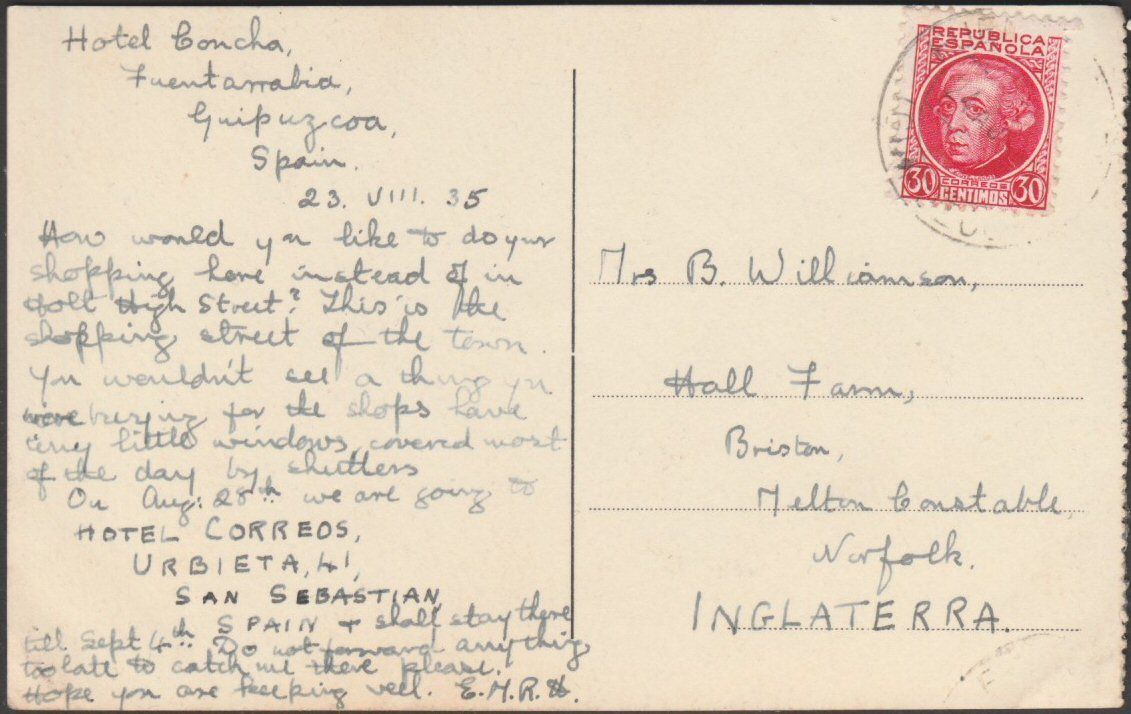 Hotel Concha,
Fuentarrabia,
Guipuzcoa,
Spain.
23. VIII. 35
How would you like to do your
shopping here instead of in
Holt High Street? This is the
shopping street of the town.
You wouldn't see a thing you
were buying for the shops have
tiny little windows, covered most
of the day by shutters
On Aug: 28th we are going to
HOTEL CORREOS,
URBIETA, 41,
SAN SEBASTIAN,
SPAIN + shall stay there
till Sept 4th. Do not forward anything
too late to catch me there please.
Hope you are keeping well. E.M.R.H.
REPUBLICA
ESPAÑOLA
30 CORREOS 30
CENTIMOS
Mrs B. Williamson,
Hall Farm,
Briston,
Melton Constable,
Norfolk.
INGLATERRA.